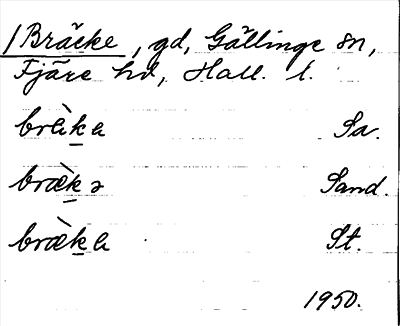 /Bräcke, gd, Gällinge sn,
Fjäre hd, Hall. l.
bràk̲a Sa.
bræ̀k̲ə Sand.
bræ̀k̲a St.
1950.